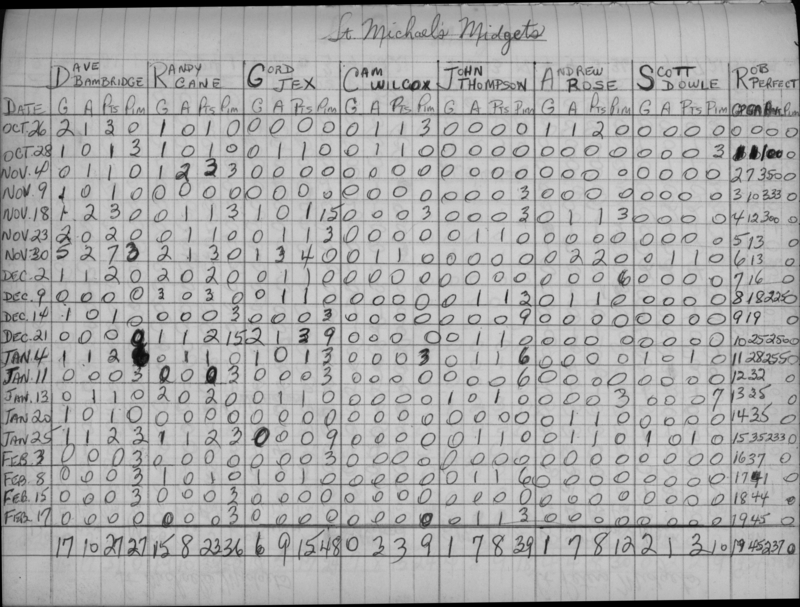 St. Michael's Midgets
DAVE BAMBRIDGE RANDY CANE GORD JEX CAM WILCOX JOHN THOMPSON ANDREW ROSE SCOTT DOWLE ROB PERFECT
DATE G A Pts Pim G A Pts Pim G A Pts Pim G A Pts Pim G A Pts Pim G A Pts Pim G A Pts Pim GP GA Pim
OCT. 26 2 1 3 0 1 0 1 0 0 0 0 0 0 1 1 3 0 0 0 0 1 1 2 0 0 0 0 0 0 0 0 0
OCT. 28 1 0 1 3 1 0 1 0 0 1 1 0 0 1 1 0 0 0 0 0 0 0 0 0 0 0 0 3
NOV. 4 0 1 1 0 1 2 3 3 0 0 0 0 0 0 0 0 0 0 0 0 0 0 0 0 0 0 0 0 2 7 3.50 0
NOV. 9 1 0 1 0 0 0 0 0 0 0 0 0 0 0 0 0 0 0 0 3 0 0 0 0 0 0 0 0 3 10 3.33 0
NOV. 18 1 2 3 0 0 1 1 3 1 0 1 15 0 0 0 3 0 0 0 3 0 1 1 3 0 0 0 0 4 12 3.00 0
NOV 23 2 0 2 0 0 1 1 0 0 1 1 3 0 0 0 0 0 1 1 0 0 0 0 0 0 0 0 0 5 13 0
NOV 30 5 2 7 3 2 1 3 0 1 3 4 0 0 1 1 0 0 0 0 0 0 2 2 0 0 1 1 0 6 13 0
DEC. 2 1 1 2 0 2 0 2 0 0 1 1 0 0 0 0 0 0 0 0 0 0 0 0 6 0 0 0 0 7 16 0
DEC. 9 0 0 0 0 3 0 3 0 0 1 1 0 0 0 0 0 0 1 1 3 0 1 1 0 0 0 0 0 8 18 2.25 0
DEC. 14 1 0 1 0 0 0 0 3 0 0 0 3 0 0 0 0 0 0 0 9 0 0 0 0 0 0 0 0 9 19 0
DEC. 21 0 0 0 0 1 1 2 15 2 1 3 9 0 0 0 0 0 1 1 0 0 0 0 0 0 0 0 0 10 25 2.50 0
JAN. 4 1 1 2 0 1 1 0 1 0 1 3 0 0 0 3 0 1 1 6 0 0 0 0 1 0 1 0 11 28 2.55 0
JAN. 11 0 0 0 3 0 0 0 3 0 0 0 3 0 0 0 0 0 0 0 6 0 0 0 0 0 0 0 0 12 32 0
JAN. 13 0 1 1 0 2 0 2 0 0 1 1 0 0 0 0 0 1 0 1 0 0 0 0 3 0 0 0 7 13 35 0
JAN 20 1 0 1 0 0 0 0 0 0 0 0 0 0 0 0 0 0 0 0 0 0 1 1 0 0 0 0 0 14 35 0
JAN 25 1 1 2 3 1 1 2 3 0 0 0 9 0 0 0 0 0 1 1 0 0 1 1 0 1 0 1 0 15 35 2.33 0
FEB. 3 0 0 0 3 0 0 0 0 0 0 0 3 0 0 0 0 0 0 0 0 0 0 0 0 0 0 0 0 16 37 0
FEB. 8 0 0 0 3 1 0 1 0 1 0 1 0 0 0 0 0 0 1 1 6 0 0 0 0 0 0 0 0 17 41 0
FEB. 15 0 0 0 3 0 0 0 3 0 0 0 0 0 0 0 0 0 0 0 0 0 0 0 0 0 0 0 0 18 44 0
FEB. 17 0 0 0 0 0 0 0 3 0 0 0 0 0 0 0 0 0 1 1 3 0 0 0 0 0 0 0 0 19 45 0
17 10 27 27 15 8 23 36 6 9 15 48 0 3 3 9 1 7 8 39 1 7 8 12 2 1 3 10 19 45 2.37 0